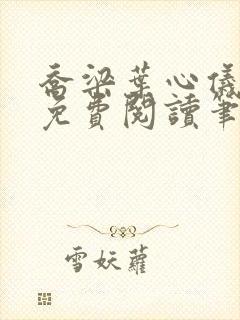 喬梁葉心儀
免費閱讀筆
雪妖蘿